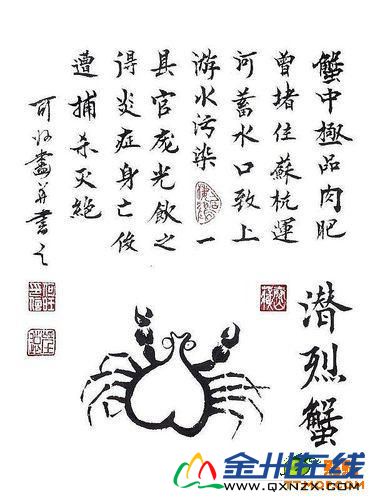 蟹中極品肉肥
曾堵住蘇杭運
河蓄水口致上
游水污染一
具官庞光飲之
得炎症身亡後
遭捕杀灭絕
可 畫并書之
潜烈蟹
金州在线
WWW.QXNZX.COM